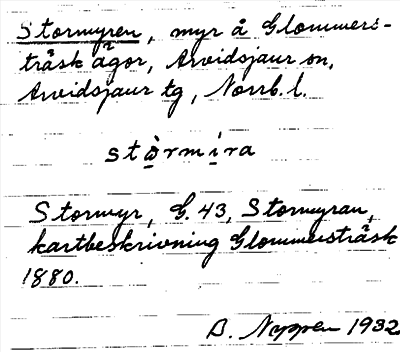 Stormyren, myr å Glommers-
träsk ägor, Arvidsjaur sn,
Arvidsjaur tg, Norrb. l.
stòrmíra
Stormyr, G. 43, Stormyran,
kartbeskrivning Glommersträsk
1880.
B. Nyppen 1932